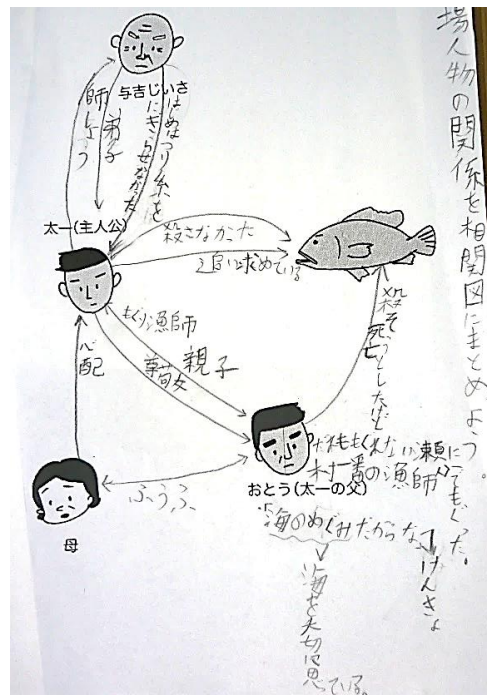 場人物の関係を相関図にまとめよう。
与吉じいさ
師しょう
弟子
はなつり糸を
にぎらせなかった
太一(主人公)
殺さなかった
追い求めている
もぐり漁師
親子
心配
殺そうとしたけど
死亡
だれももぐれない瀬に
もぐった。
村一番の漁師
おとう(太一の父)
ふうふ
母
海のめぐみだからな
けんきょ
海を大切に思
ている。